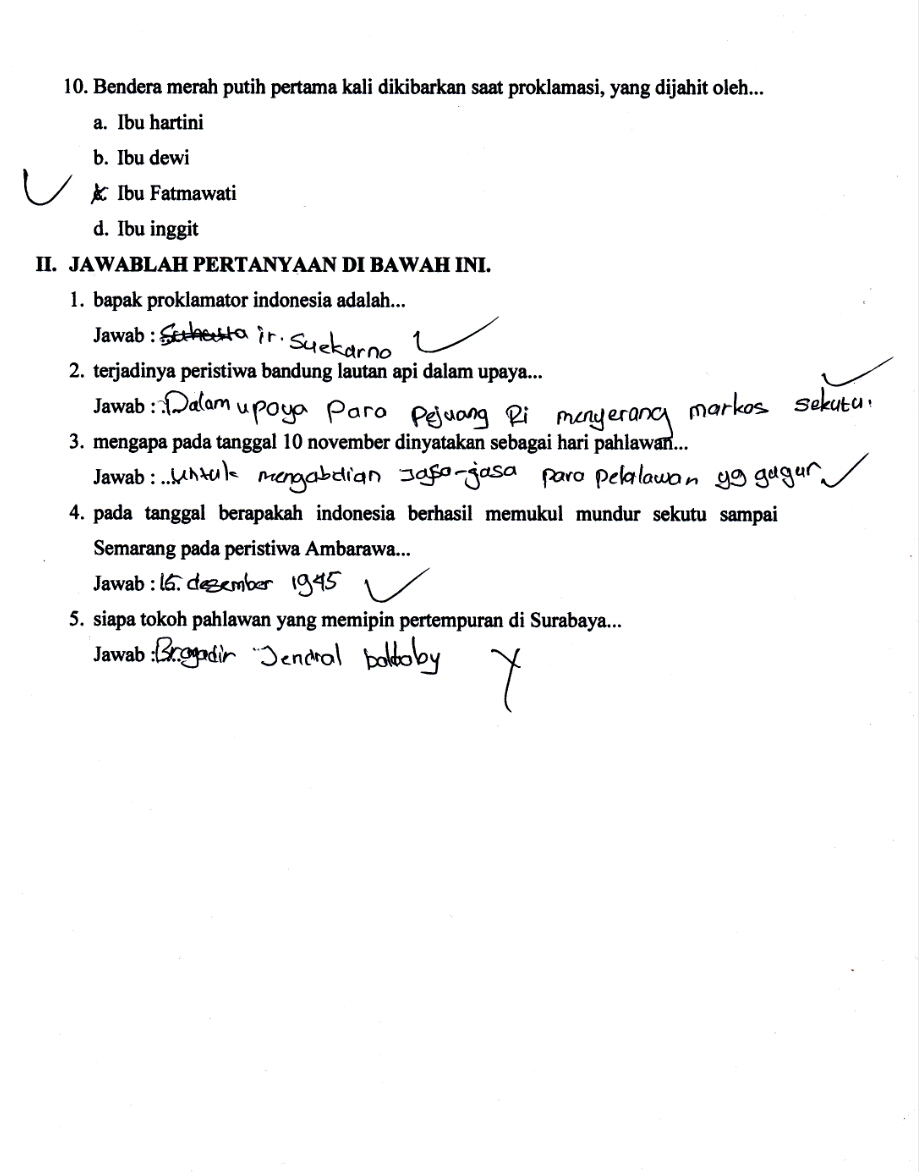 10. Bendera merah putih pertama kali dikibarkan saat proklamasi, yang dijahit oleh...
a. Ibu hartini
b. Ibu dewi
c. Ibu Fatmawati
d. Ibu inggit
II. JAWABLAH PERTANYAAN DI BAWAH INI.
1. bapak proklamator indonesia adalah...
Jawab : ir. Suekarno
2. terjadinya peristiwa bandung lautan api dalam upaya...
Jawab : Dalam upaya Para Pejuang Ri menyerang markos sekutu.
3. mengapa pada tanggal 10 november dinyatakan sebagai hari pahlawan...
Jawab : ..untuk mengabdian Jasa-jasa para pelalawan yg gugur
4. pada tanggal berapakah indonesia berhasil memukul mundur sekutu sampai
Semarang pada peristiwa Ambarawa...
Jawab : 15. desember 1945
5. siapa tokoh pahlawan yang memipin pertempuran di Surabaya...
Jawab : Brogadir Jendral